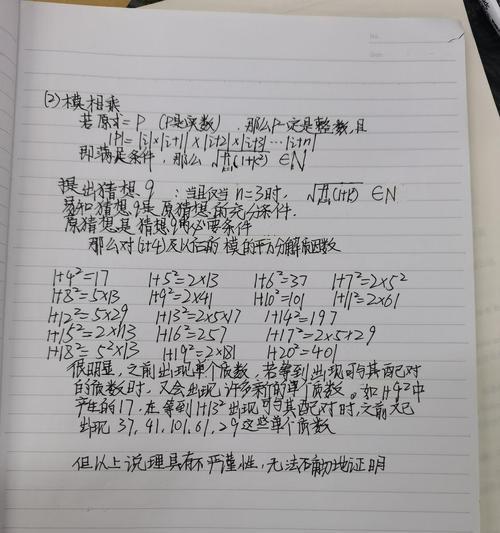 No.
Date
(2) 模相乘
若原式=P (P是实数),那么P一定是整数,且
|P|=|i|×|i+1|×|i+2|×|i+3|…|i+n|
即满足条件,那么 √∏(1+k²) ∈N
提出猜想q :当且仅当 n=3时, √∏(1+k²) ∈N
易知猜想q是原猜想的充分条件.
原猜想是猜想q的必要条件
那么对(i+4)及以后的模的平方分解质因数
1+4²=17 1+5²=2×13 1+6²=37 1+7²=2×5²
1+8²=5×13 1+9²=2×41 1+10²=101 1+11²=2×61
1+12²=5×29 1+13²=2×5×17 1+14²=197
1+15²=2×113 1+16²=257 1+17²=2×5×29
1+18²=5²×13 1+19²=2×181 1+20²=401
很明显,之前出现单个质数,若等到出现可与其配对
的质数时,又会出现许多新的单个质数。如1+4²中
产生的17,在等到1+13²出现可与其配对时,之前又已
出现 37,41,101,61,29这些单个质数
但以上说理具有不严谨性,无法有力地证明